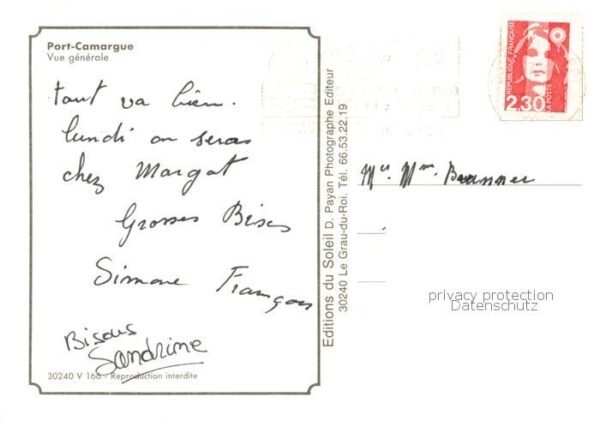 Port-Camargue
Vue générale
tout va bien.
lundi on seras
chez Margot
Grosses Bises
Simone François
Bisous
Sandrine
30240 V 166 - Reproduction interdite
Editions du Soleil D. Payan Photographe Editeur
30240 Le Grau-du-Roi. Tél. 66.53.22.19
REPUBLIQUE FRANÇAISE
2,30
LA POSTE
Mr Mme
privacy protection
Datenschutz